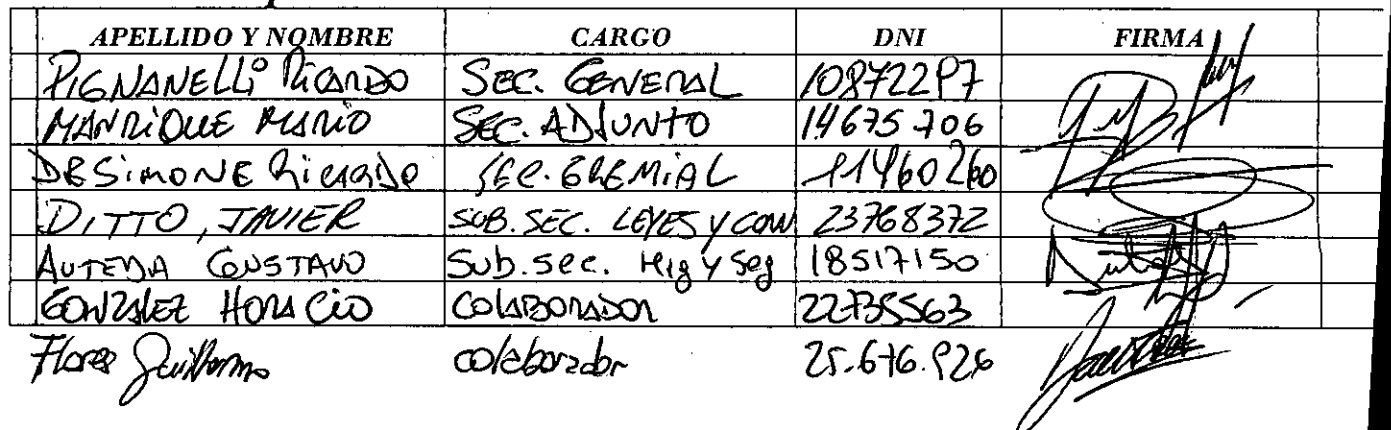 APELLIDO Y NOMBRE CARGO DNI FIRMA
PIGNANELLI Ricardo SEC. GENERAL 10872297
MANRIQUE MARIO SEC. ADJUNTO 14675.706
DESIMONE Ricardo SEC. GREMIAL 11460260
DITTO, JAVIER SUB. SEC. LEYES Y CONV 23768372
AUTEDA GUSTAVO Sub. sec. Hig y Seg 18517150
GONZALEZ HORACIO COLABORADOR 22735563
Flores Guillermo colaborador 25.676.926